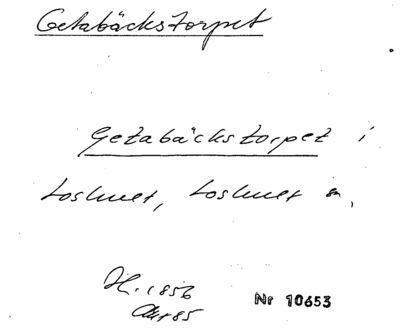 Getabäckstorpet
Getabäckstorpet i
Loshult, Loshult sn,
H. 1856
Nr 10653